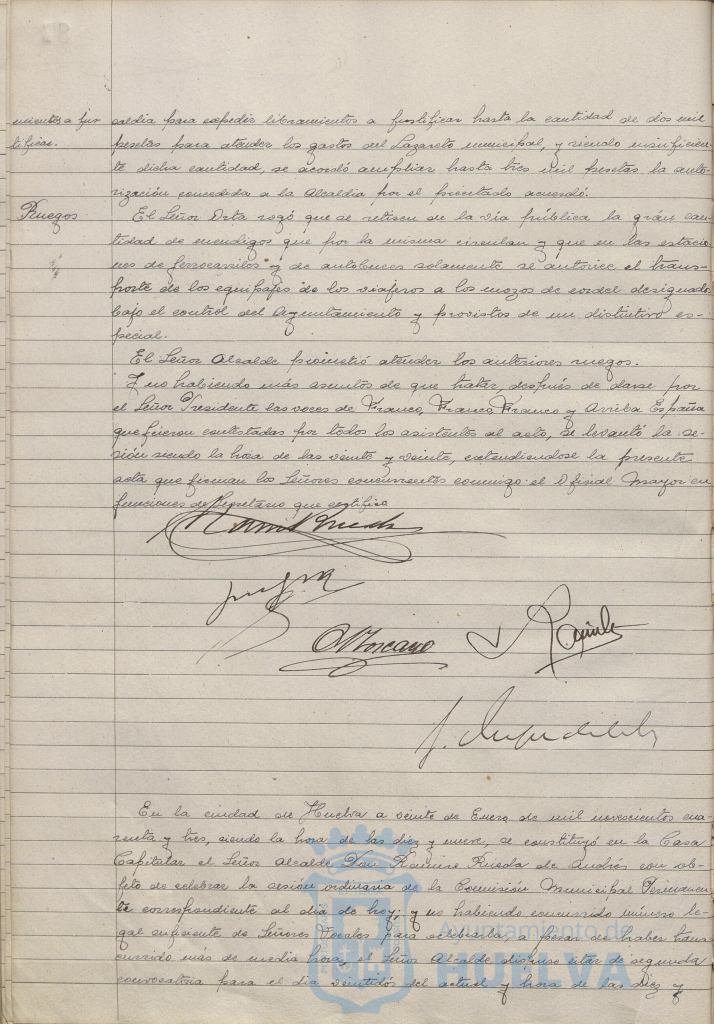 mientos a jus
tificar.
caldia para expedir libramientos a justificar hasta la cantidad de dos mil
pesetas para atender los gastos del Lazareto municipal, y siendo insuficien-
te dicha cantidad, se acordó ampliar hasta tres mil pesetas la auto-
rización concedida a la Alcaldia por el precitado acuerdo.
Ruegos
El Señor Orta rogó que se retiren de la via pública la grán can-
tidad de mendigos que por la misma circulan y que en las estacio-
nes de ferrocarriles y de autobuses solamente se autorice el trans-
porte de los equipajes de los viajeros a los mozos de cordel designados
bajo el control del Ayuntamiento y provistos de un distintivo es-
pecial.
El Señor Alcalde prometió atender los anteriores ruegos.
Y no habiendo más asuntos de que tratar, después de darse por
el Señor Presidente las voces de Franco, Franco, Franco y Arriba España
que fueron contestadas por todos los asistentes al acto, se levantó la se-
sión siendo la hora de las veinte y veinte, extendiendose la presente
acta que firman los Señores concurrentes conmigo el Oficial Mayor en
funciones de Secretario que certifico
En la ciudad de Huelva a veinte de Enero de mil novecientos cua-
renta y tres, siendo la hora de las diez y nueve, se constituyó en la Casa
Capitular el Señor Alcalde Don Ramiro Rueda de Andrés con ob-
jeto de celebrar la sesión ordinaria de la Comisión Municipal Permanen-
te correspondiente al dia de hoy; y no habiendo concurrido número le-
gal suficiente de Señores Vocales para celebrarla, a pesar de haber trans-
currido más de media hora, el Señor Alcalde dispuso citar de segunda
convocatoria para el dia veintidos del actual y hora de las diez y
Ayuntamiento de
HUELVA